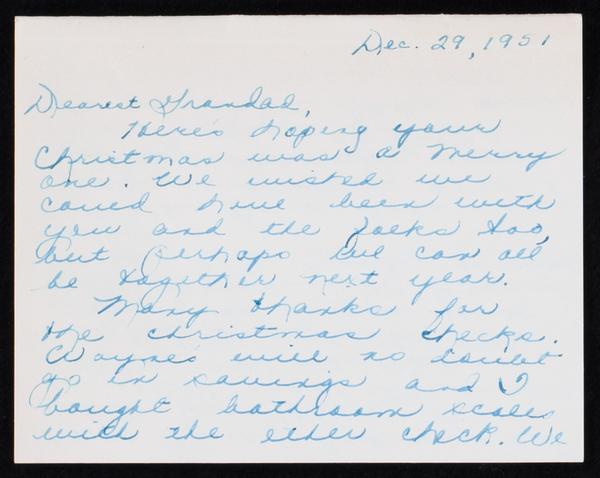 Dec. 29, 1951
Dearest Grandad,
Here's hoping your
Christmas was a merry
one. We wished we
could have been with
you and the folks too,
but perhaps we can all
be together next year.
Many thanks for
the Christmas checks.
Wayne's will no doubt
go in savings and I
bought bathroom scales
with the other check. We